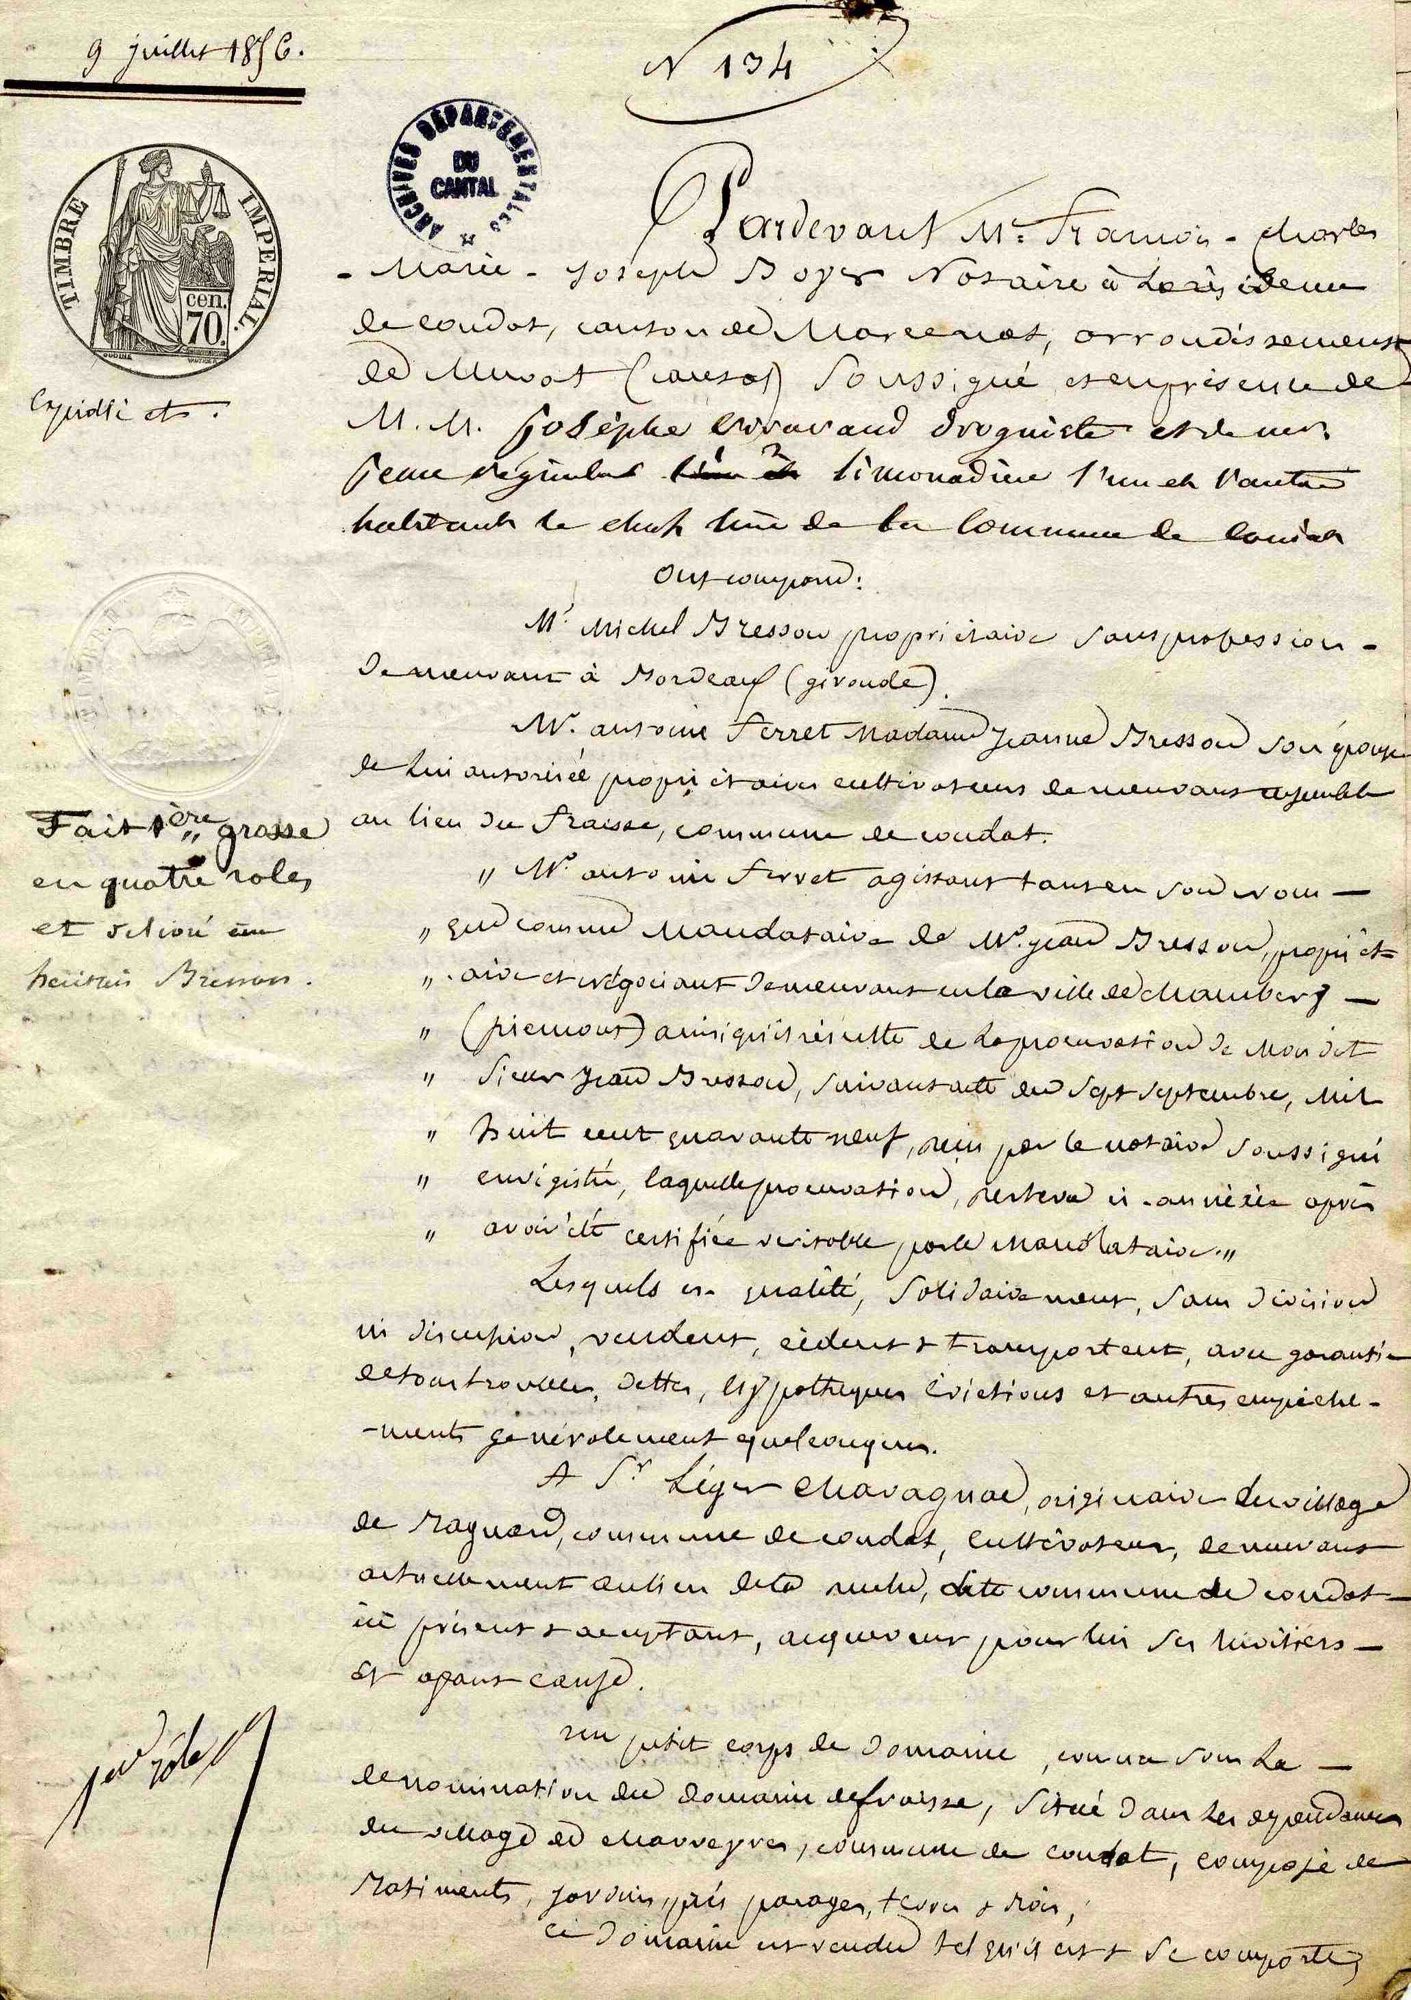 9 juillet 1856.
N 134
TIMBRE IMPERIAL.
cen. 70.
ARCHIVES DÉPARTEMENTALES
DU
CANTAL
Pardevant Mr. François - Charles
- Marie - Joseph Boyer Notaire à la résidence
de Condat, canton de Marcenat, arrondissement
de Murat (Cantal) Soussigné et en présence de
M. M. Josèphe droguiste et de
jeune limonadier l'un et l'autre
habitants le chef lieu de la Commune de Condat
Ont comparu:
Mr Michel Bresson propriétaire sans profession -
demeurant à Bordeaux (gironde).
Mr. antoine Ferret Madame Jeanne Bresson son épouse
de lui autorisée propriétaires cultivateurs demeurant ensemble
au lieu du fraisse, commune de condat.
" Mr. antoine Ferret agissant tant en son nom —
" que comme Mandataire de Mr. jean Bresson, propriét-
" -aire et négociant demeurant en la ville de chambery —
" (piemont) ainsi qu'il résulte de la procuration de mondit
" Sieur Jean Bresson, suivant acte du sept septembre, mil
" huit cent quarante neuf, reçu par le notaire soussigné
" enregistré, laquelle procuration, restera ci-annéxée après
" avoir été certifiée véritable par le mandataire."
Lesquels en qualité, solidairement, sans division
ni discussion, vendent, cèdent & transportent, avec garantie
de tous troubles, dettes, hypothèques évictions et autres empêche-
-ments généralement quelconques.
A Sr Léger Chavagnac, originaire du village
de commune de condat, cultivateur, demeurant
actuellement au lieu de la dite commune de condat —
ici présent & acceptant, acquéreur pour lui ses héritiers —
et ayant cause.
un petit corps de domaine, connu sous la —
dénomination du domaine de fraisse, situé dans les dépendances
du village de commune de condat, composé de
Batiments, jardin, prés pacages, terres & bois;
ce domaine est vendu tel qu'il est & se comporte,
Expédié etc.
Fait 1ère grosse
en quatre roles
et délivré aux
héritiers Bresson.
role